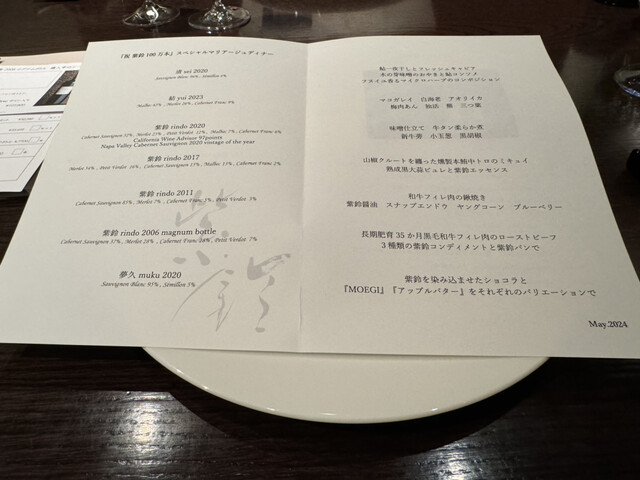 「祝 紫鈴 100万本」スペシャルマリアージュディナー
清 sei 2020
Sauvignon Blanc 96% , Sémillon 4%
結 yui 2023
Malbec 65% , Merlot 26% , Cabernet Franc 9%
紫鈴 rindo 2020
California Wine Advisor 97points
Napa Valley Cabernet Sauvignon 2020 vintage of the year
紫鈴 rindo 2017
紫鈴 rindo 2011
Cabernet Sauvignon 85% , Merlot 7% , Cabernet Franc 5% , Petit Verdot 3%
紫鈴 rindo 2006 magnum bottle
Cabernet Sauvignon 57% , Merlot 25% , Cabernet Franc 10% , Petit Verdot 7%
夢久 muku 2020
Sauvignon Blanc 95% , Sémillon 5%
紫鈴
鮎一夜干しとフレッシュキャビア
木の芽味噌のおやきと鮎コンソメ
フヌイユ香るマイクロハーブのコンポジション
マコガレイ 白海老 アオリイカ
梅肉あん 独活 柳 三つ葉
味噌仕立て 牛タン柔らか煮
新牛蒡 小玉葱 黒胡椒
山椒クルートを纏った燻製本鮪中トロのミキュイ
熟成黒大蒜ピュレと紫鈴エッセンス
和牛フィレ肉の鍬焼き
紫鈴醤油 スナップエンドウ ヤングコーン ブルーベリー
長期肥育35か月黒毛和牛フィレ肉のローストビーフ
3種類の紫鈴コンディメントと紫鈴パンで
紫鈴を染み込ませたショコラと
『MOEGI』『アップルバター』をそれぞれのバリエーションで
May.2024